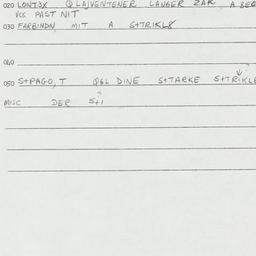 020 LONTJX QLAIVENTENER LANGER ZAK, A BEQ
VCC PAST NIT
030 FARBINDN MIT A S+TRIKL8
040
050 S+PAGO,T Q6L DINE S+TARKE S+TRIKLE
MISC DER S+I